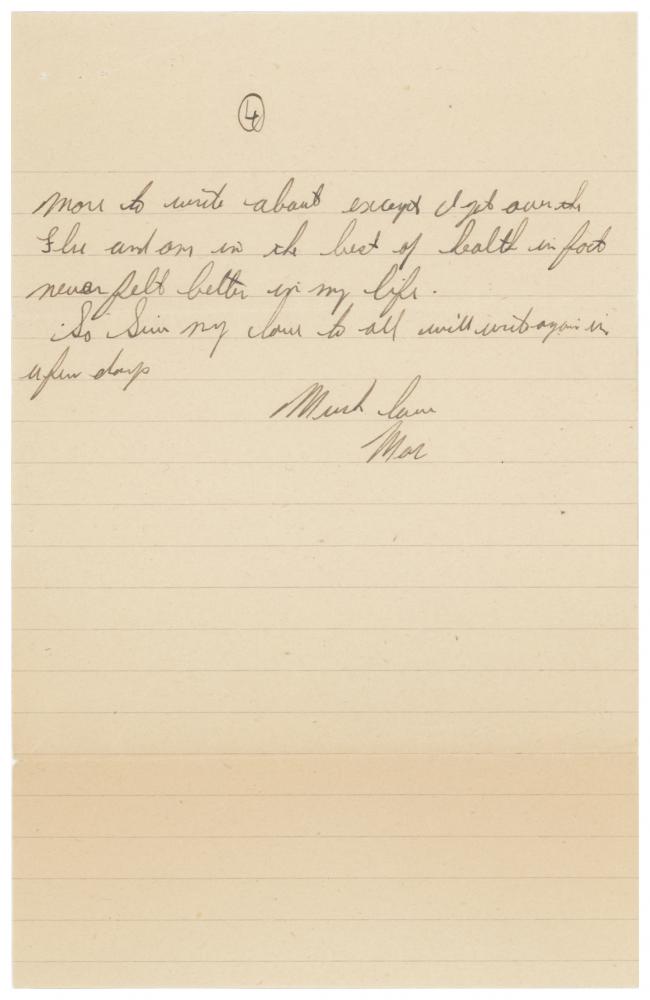 4
more to write about except I got over the
Flu and am in the best of health in fact
never felt better in my life.
So Give my love to all will write again in
a few days
Much love
Mac